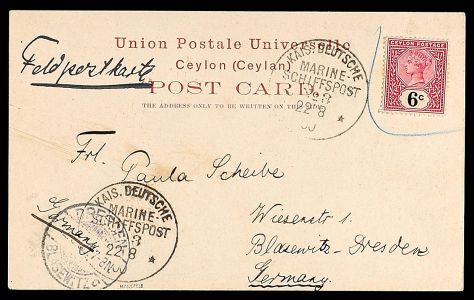 Union Postale Universelle
Ceylon (Ceylan)
POST CARD
THE ADDRESS ONLY TO BE WRITTEN ON THIS SIDE
Feldpostkarte
KAIS. DEUTSCHE
MARINE-
SCHIFFSPOST
No 3
22 8
00
CEYLON POSTAGE
6c
Frl. Paula Scheibe
Wiesenstr 1
Blasewitz-Dresden
Germany.
Germany
KAIS. DEUTSCHE
MARINE-
SCHIFFSPOST
3
22 8
DRESDEN
BLASEWITZ